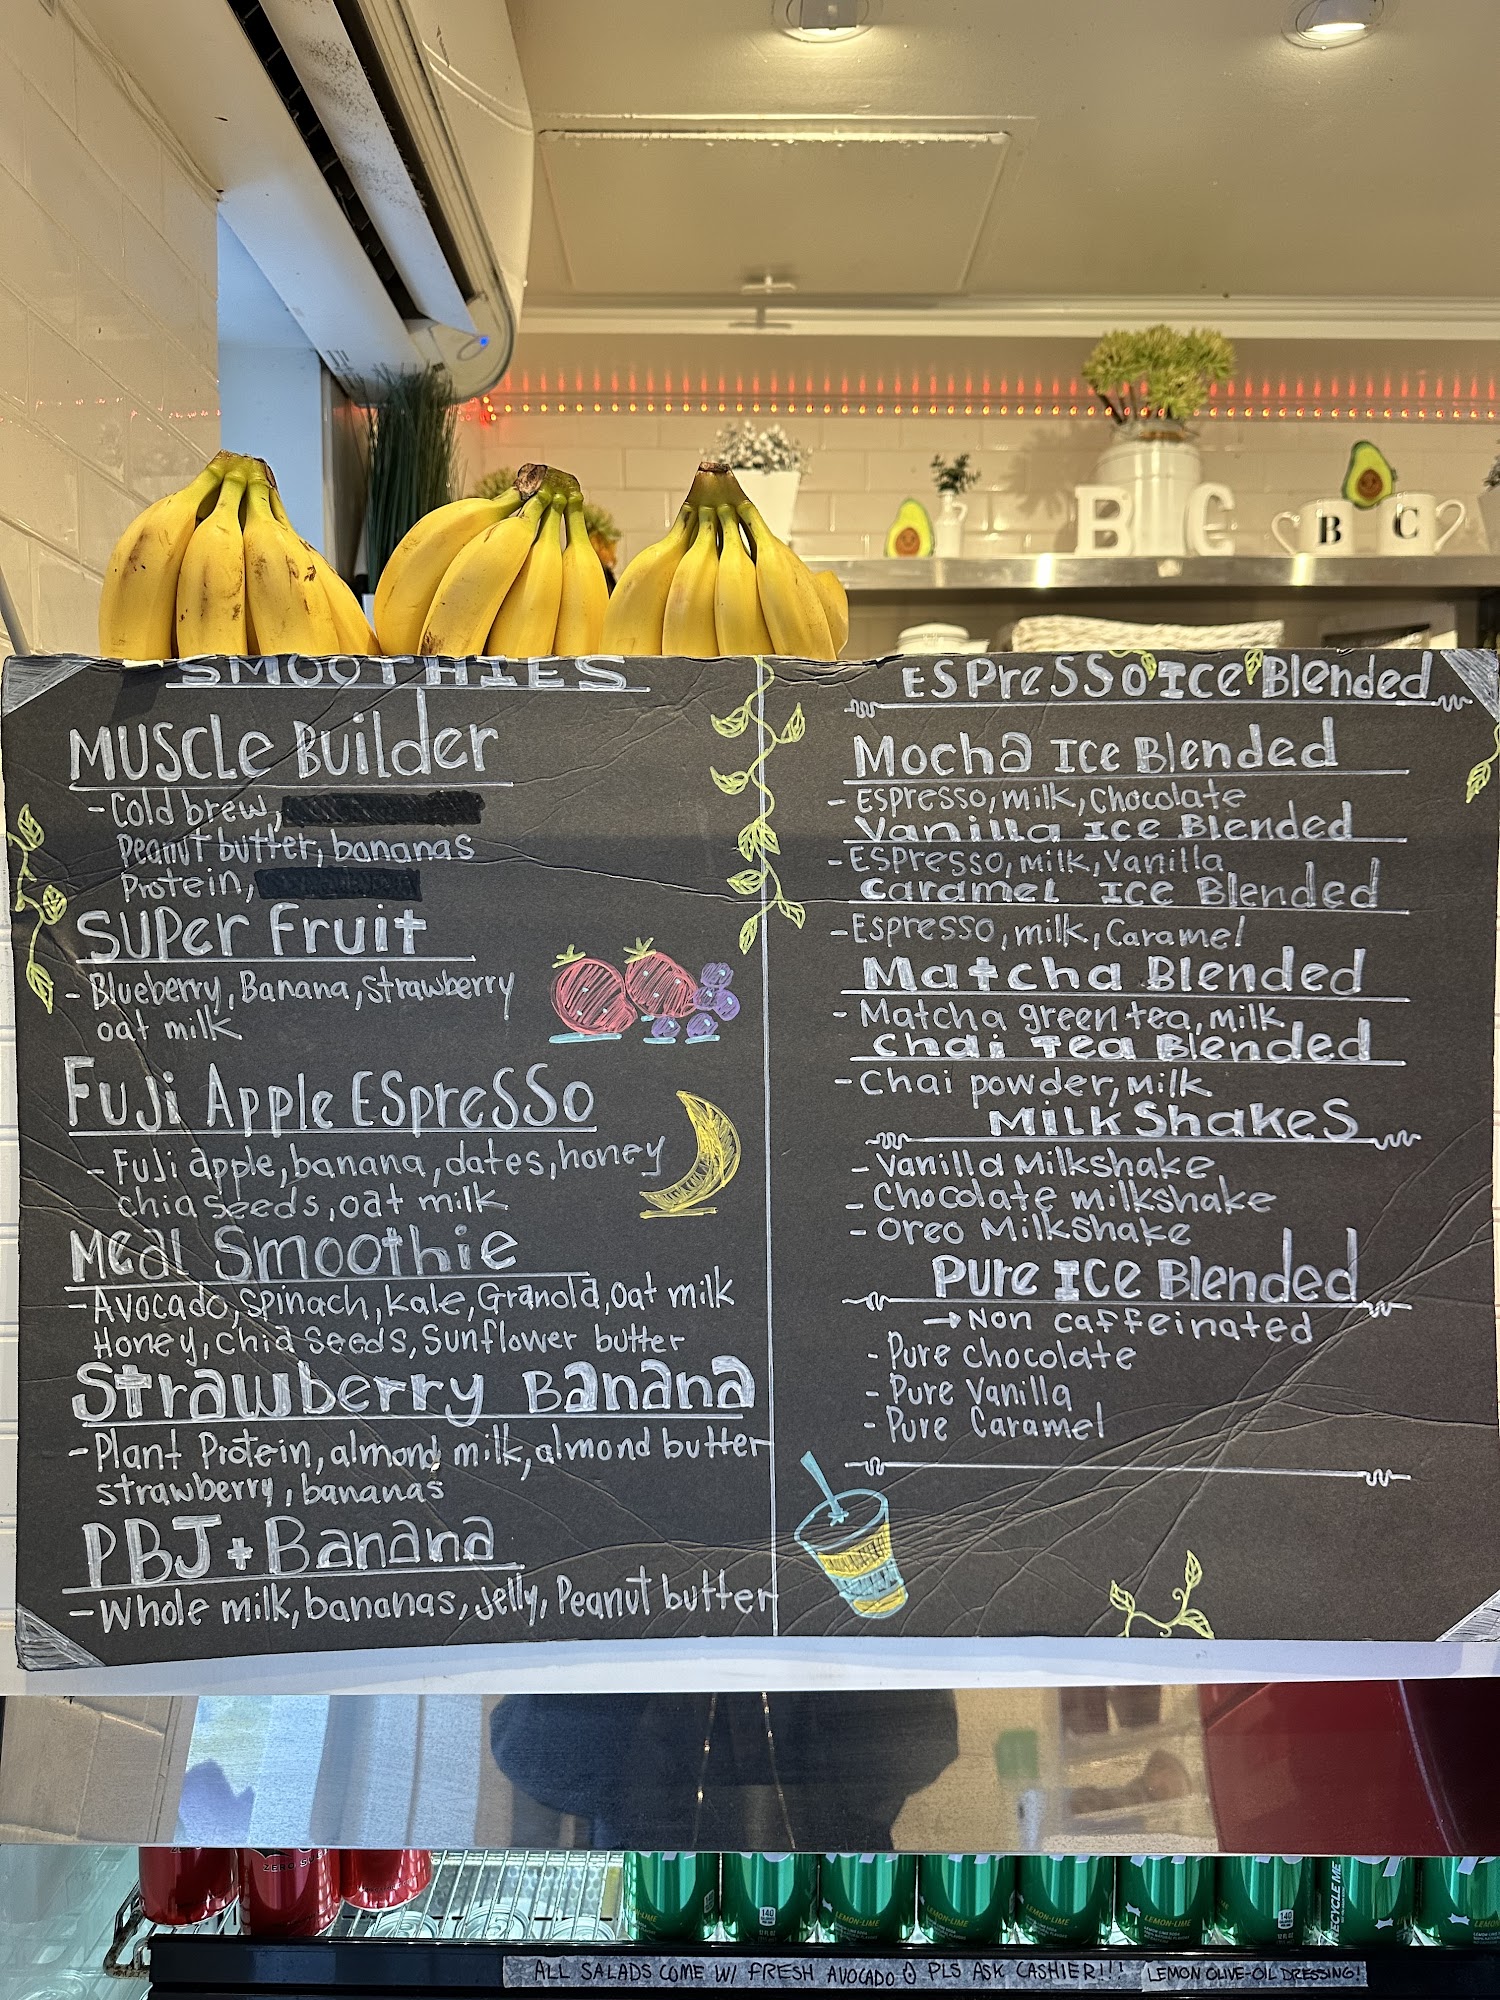 B C
B C
SMOOTHIES
Muscle Builder
- Cold brew,
Peanut butter, bananas
Protein,
Super Fruit
- Blueberry, Banana, strawberry
oat milk
Fuji Apple Espresso
- Fuji apple, banana, dates, honey
chia seeds, oat milk
Meal Smoothie
- Avocado, spinach, kale, Granola, oat milk
Honey, chia seeds, Sunflower butter
Strawberry Banana
- Plant Protein, almond milk, almond butter
strawberry, bananas
PBJ + Banana
- Whole milk, bananas, jelly, Peanut butter
Espresso Ice Blended
Mocha Ice Blended
- Espresso, milk, Chocolate
Vanilla Ice Blended
- Espresso, milk, Vanilla
Caramel Ice Blended
- Espresso, milk, Caramel
Matcha Blended
- Matcha green tea, milk
Chai Tea Blended
- Chai powder, milk
Milk Shakes
- Vanilla Milkshake
- Chocolate milkshake
- Oreo Milkshake
Pure Ice Blended
→ Non caffeinated
- Pure chocolate
- Pure Vanilla
- Pure Caramel
ZERO
LEMON-LIME
140
LEMON-LIME
LEMON-LIME
LEMON-LIME
LEMON-LIME
140
RECYCLE ME
ALL SALADS COME W/ FRESH AVOCADO PLS ASK CASHIER!!! LEMON OLIVE-OIL DRESSING!